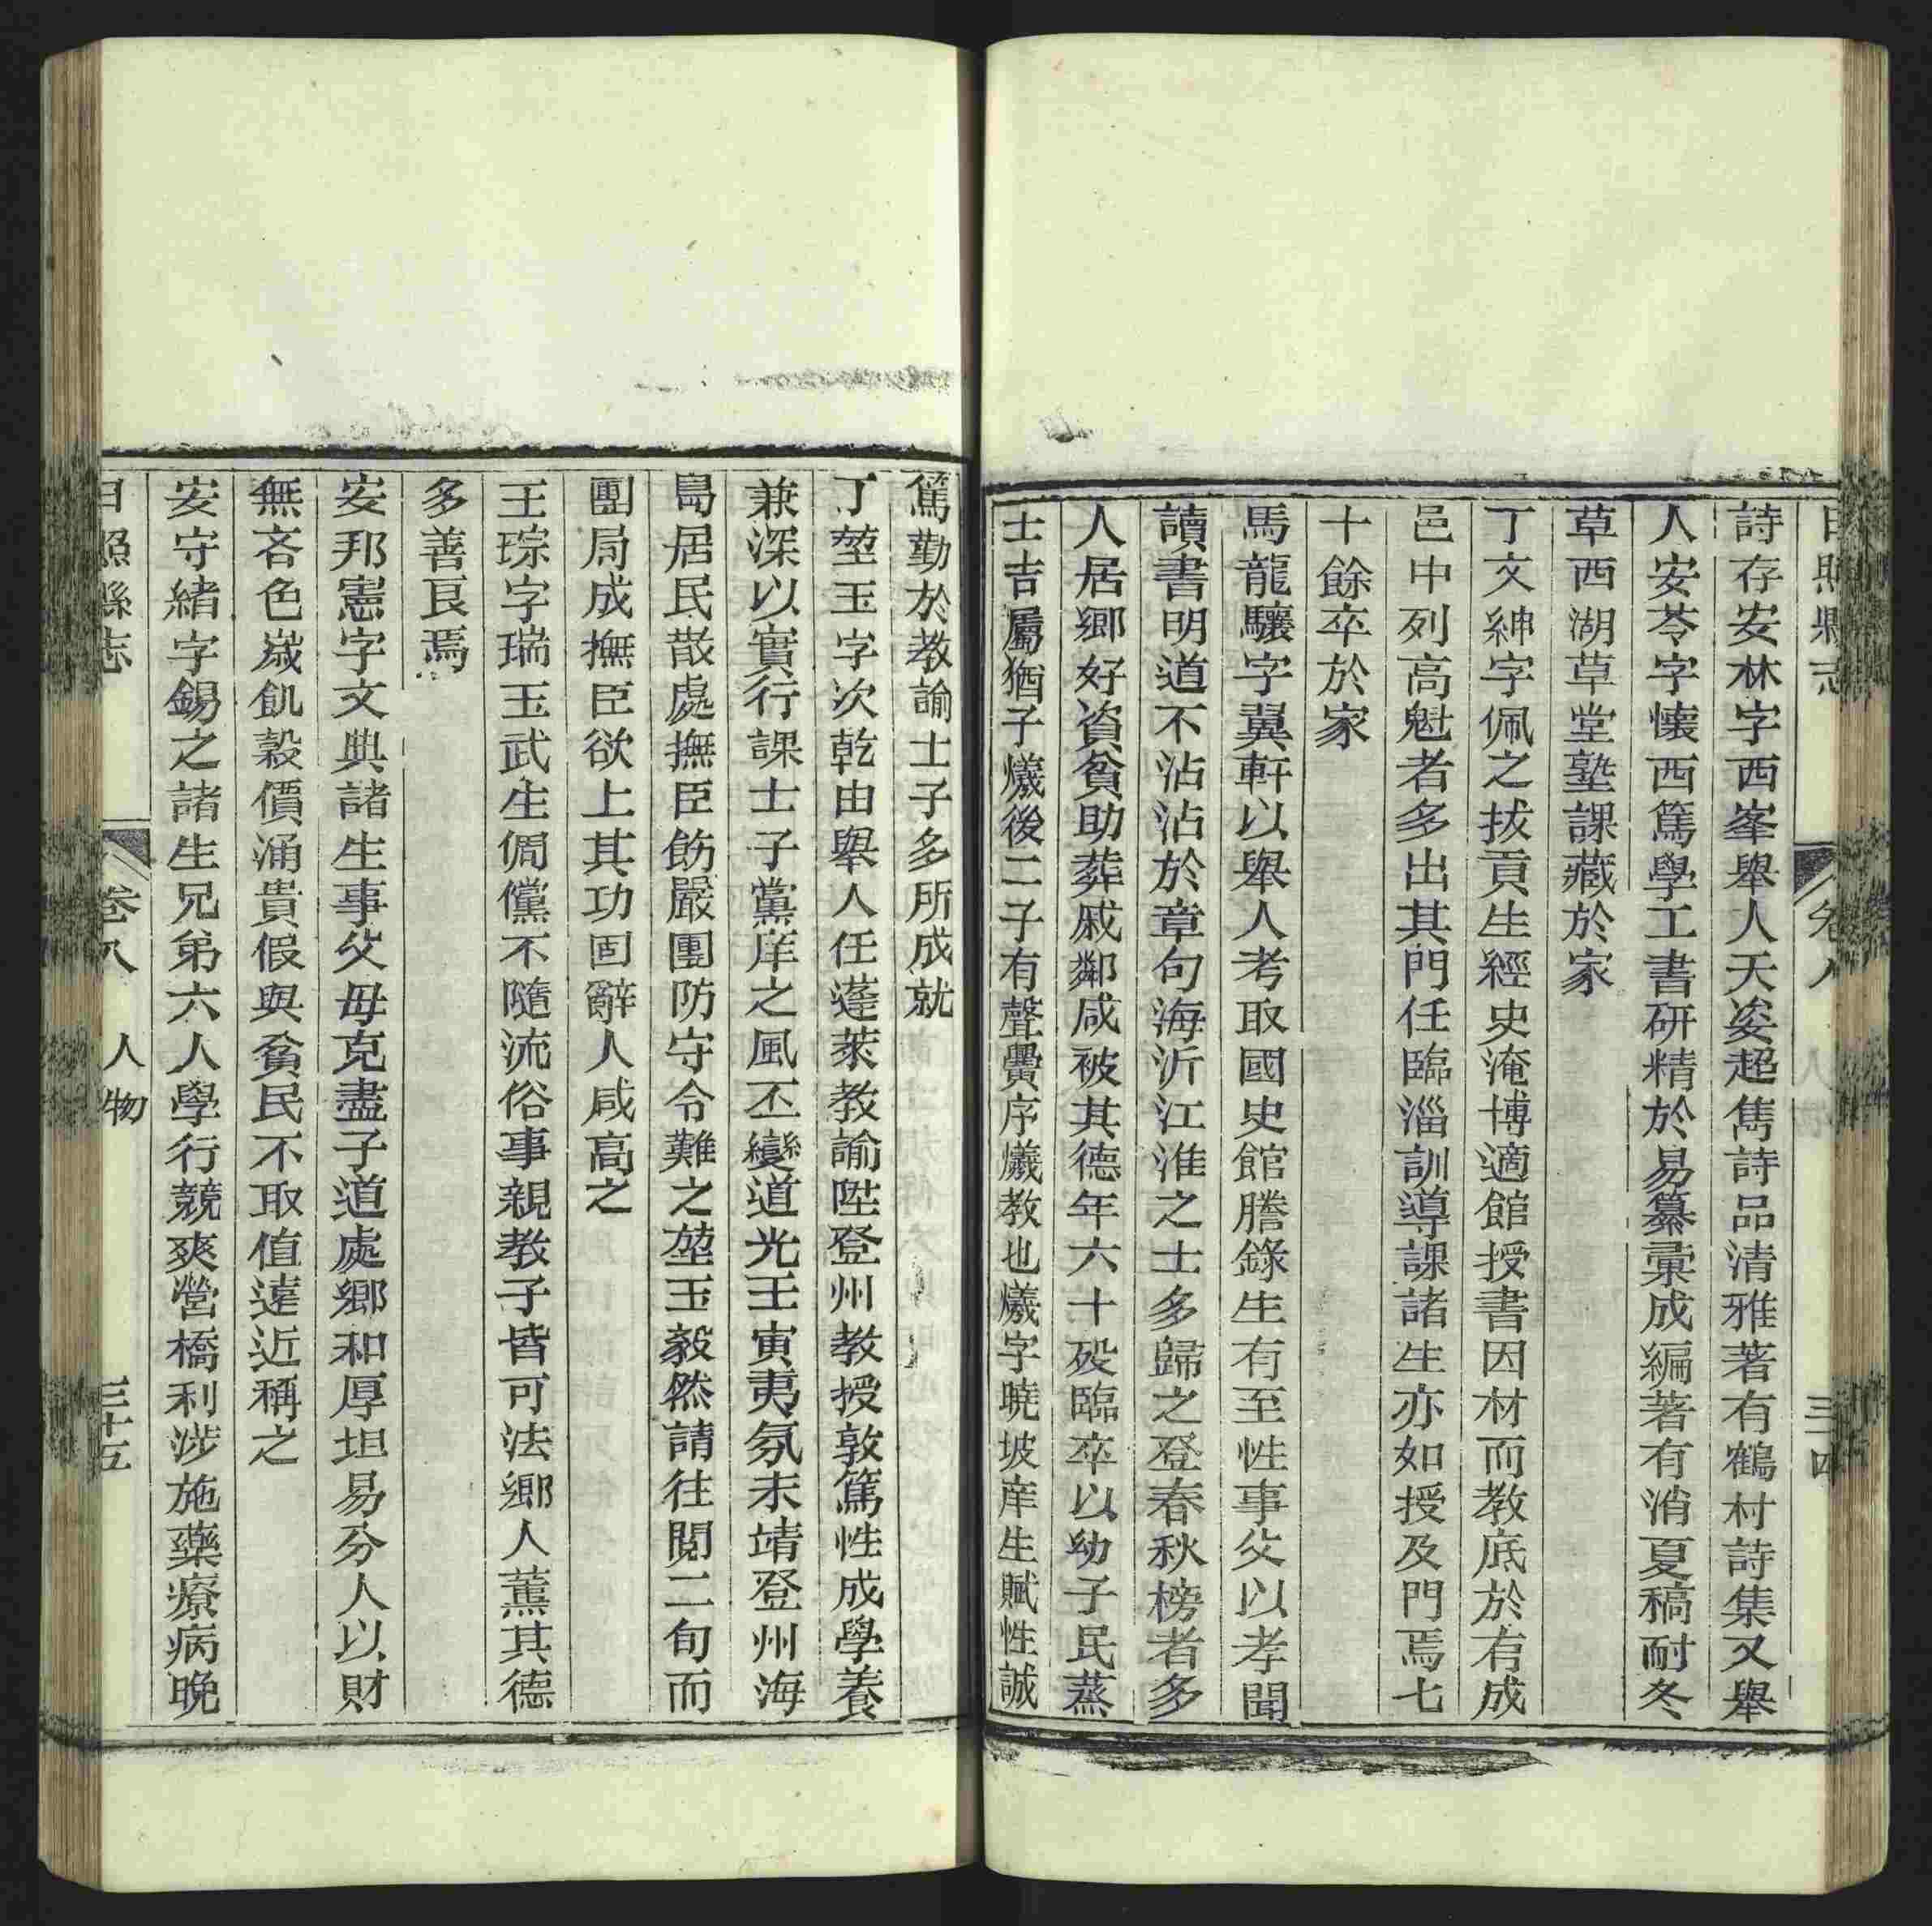 日照縣志 卷八 人物 三十四
詩存安林字西峯舉人天姿超雋詩品清雅著有鶴村詩集又舉
人安苓字懷西篤學工書研精於易纂彙成編著有消夏稿耐冬
草西湖草堂塾課藏於家
丁文紳字佩之拔貢生經史淹博適館授書因材而教底於有成
邑中列高魁者多出其門任臨淄訓導課諸生亦如授及門焉七
十餘卒於家
馬龍驤字翼軒以舉人考取國史館謄錄生有至性事父以孝聞
讀書明道不沾沾於章句海沂江淮之士多歸之登春秋榜者多
人居鄉好資貧助葬戚鄰咸被其德年六十殁臨卒以幼子民蒸
士吉屬猶子爔後二子有聲黌序爔教也爔字曉坡庠生賦性誠
篤勤於教諭士子多所成就
丁堃玉字次乾由舉人任蓬萊教諭陞登州教授敦篤性成學養
兼深以實行課士子黨庠之風丕變道光壬寅夷氛未靖登州海
島居民散處撫臣飭嚴團防守令難之堃玉毅然請往閱二旬而
團局成撫臣欲上其功固辭人咸高之
王琮字瑞玉武生倜儻不隨流俗事親教子皆可法鄉人薰其德
多善良焉
安邦憲字文典諸生事父母克盡子道處鄉和厚坦易分人以財
無吝色嵗飢穀價涌貴假與貧民不取值遠近稱之
安守緒字錫之諸生兄弟六人學行競爽營橋利涉施藥療病晚
日照縣志 卷八 人物 三十五